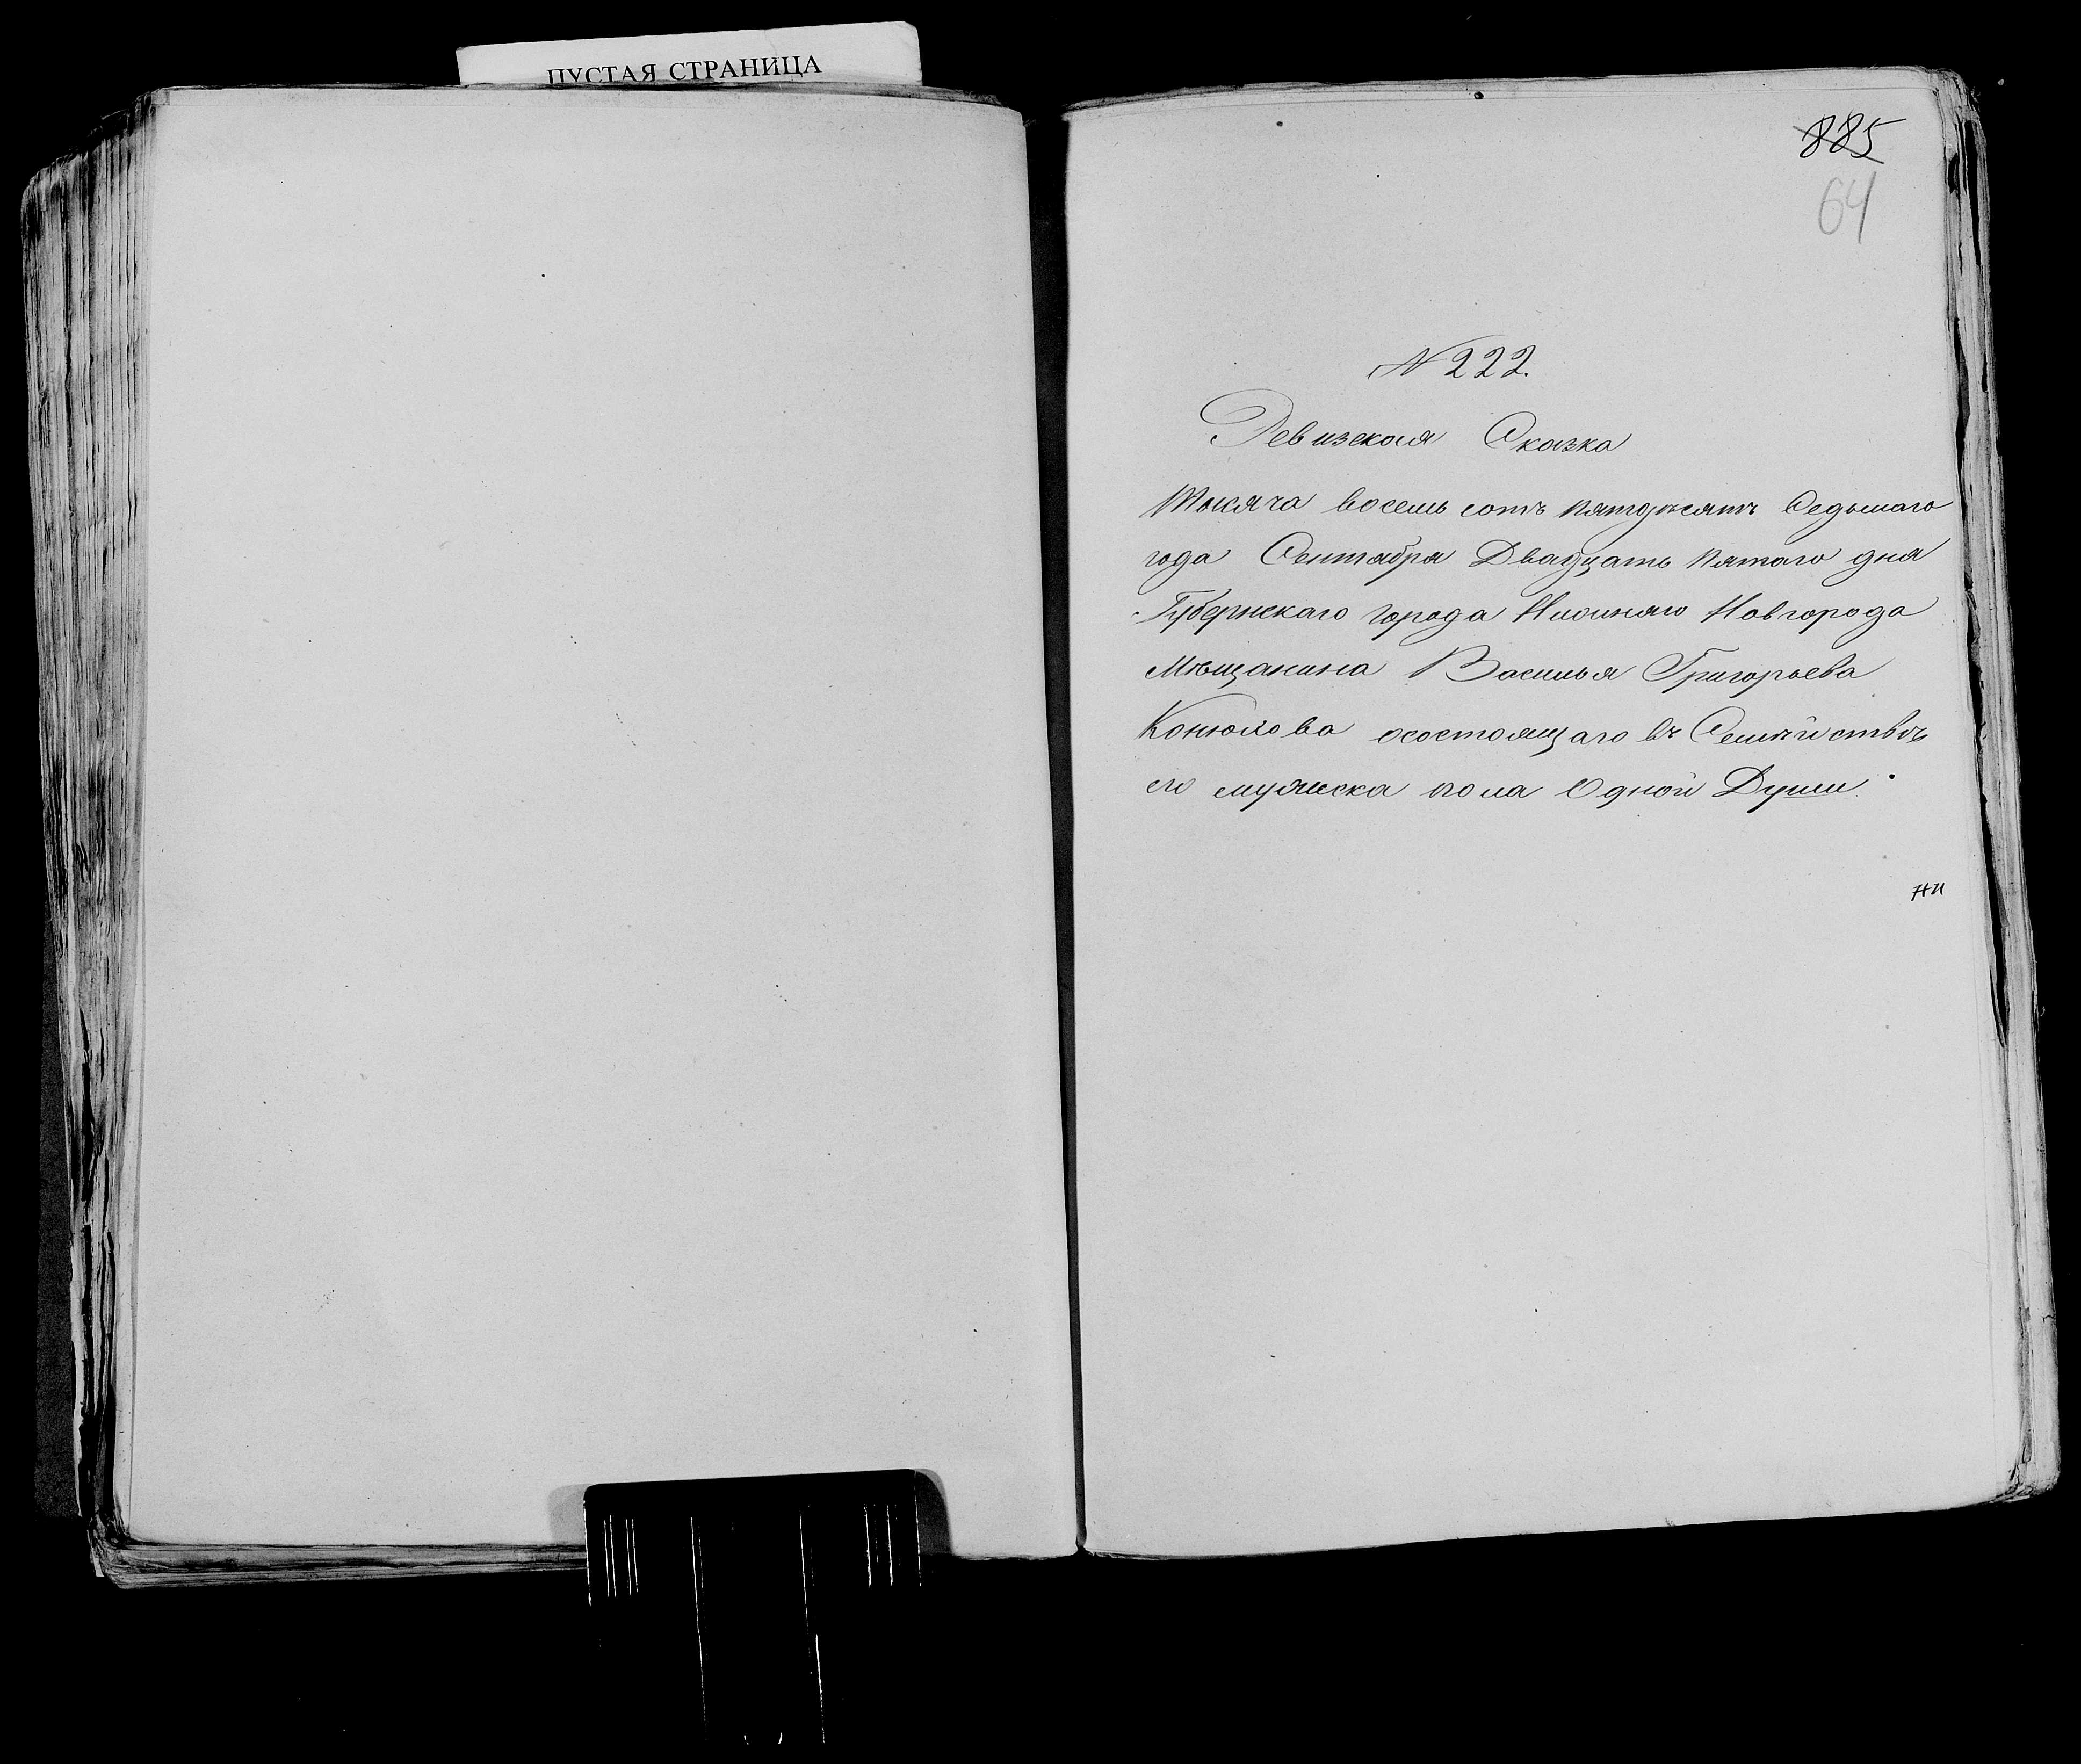 ПУСТАЯ СТРАНИЦА
885
64
№ 222.
Ревизская Сказка
Тысяча восемь сотъ пятдесятъ Седьмаго
года Сентября Двадцать пятаго дня
Губернскаго города Нижняго Новгорода
Мѣщанина Василья Григорьева
осостоящаго въ Семѣйствѣ
его мужеска пола Одной Души.